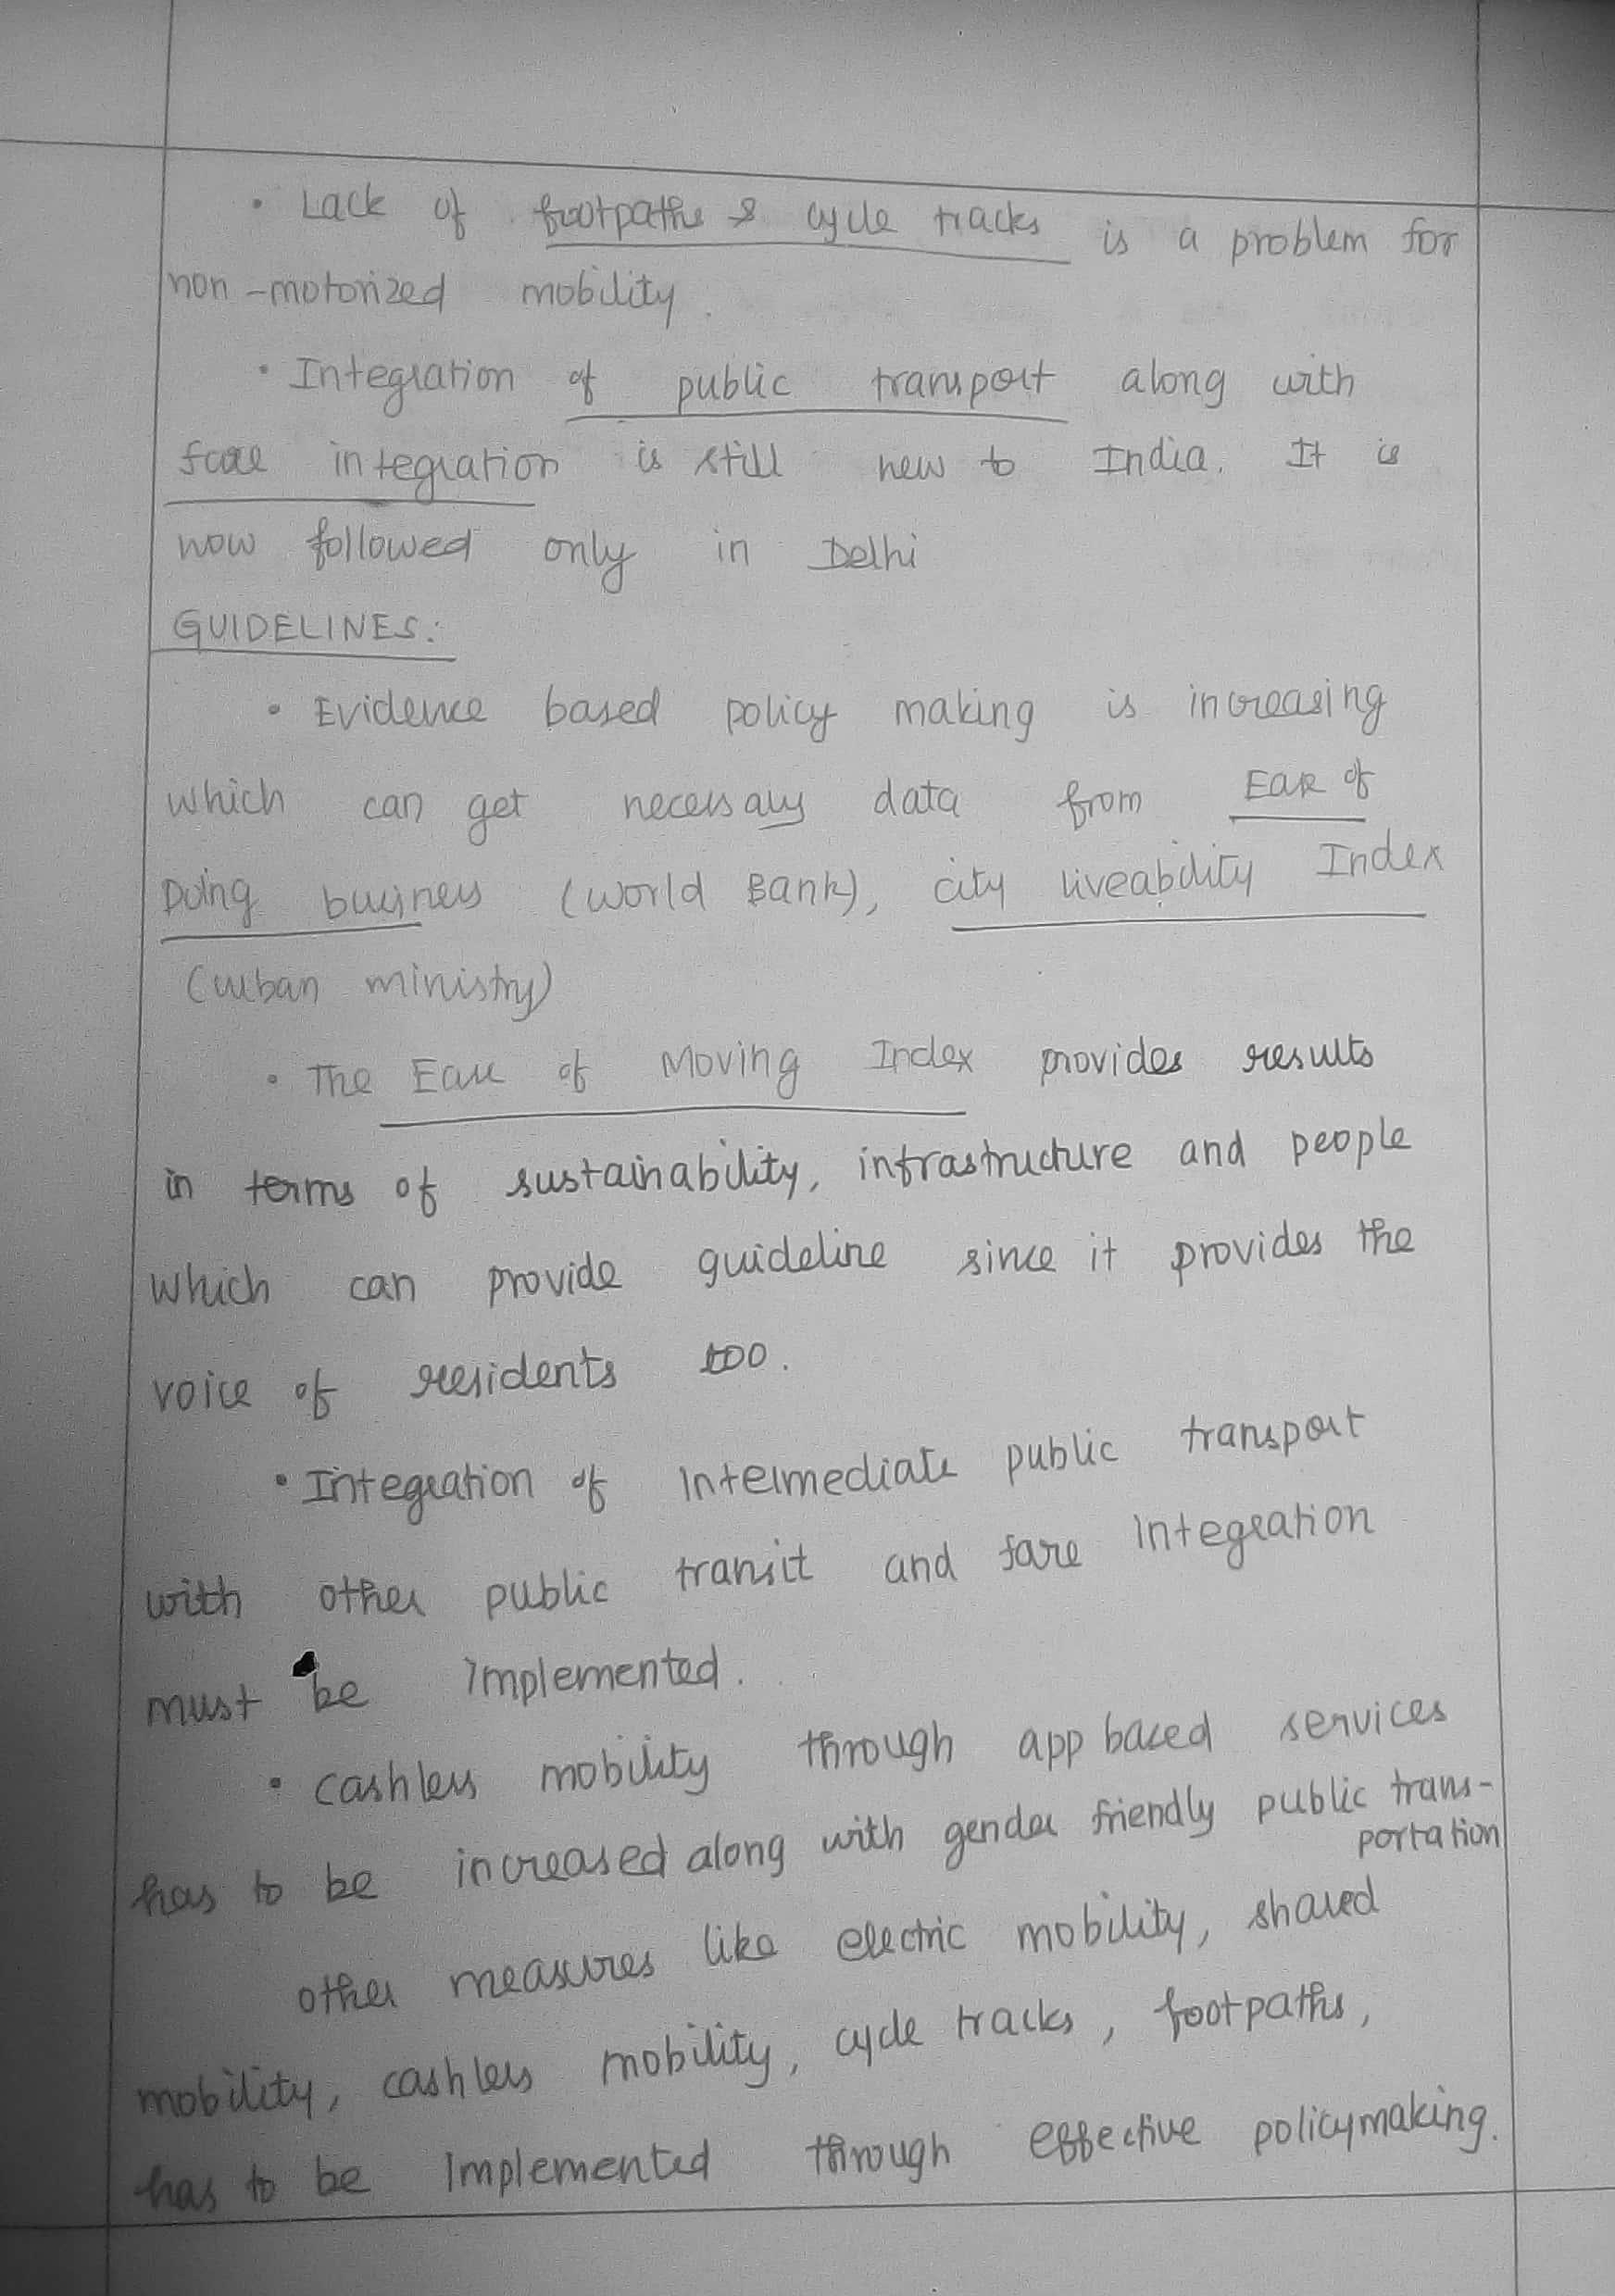 • Lack of footpaths & cycle tracks is a problem for
non-motorized mobility.
• Integration of public transport along with
fare integration is still new to India. It is
now followed only in Delhi
GUIDELINES:
• Evidence based policy making is increasing
which can get necessary data from Ease of
Doing business (World Bank), city liveability Index
(urban ministry)
• The Ease of Moving Index provides results
in terms of sustainability, infrastructure and people
which can provide guideline since it provides the
voice of residents too.
• Integration of Intermediate public transport
with other public transit and fare integration
must be implemented.
• cashless mobility through app based services
has to be increased along with gender friendly public trans-
portation
other measures like electric mobility, shared
mobility, cashless mobility, cycle tracks, footpaths,
has to be implemented through effective policymaking.